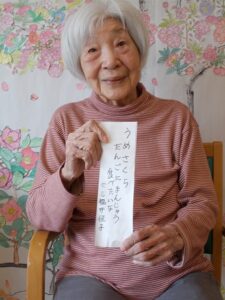 うめさくら
だんごにまんじゅう
食べたいな